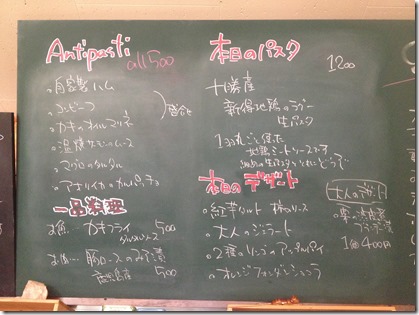 Antipasti
all 500
。自家製ハム
。コンビーフ
。カキのオイルマリネ
。温燻サーモンのムース
。マグロのタルタル
。アオリイカのカルパッチョ
盛合せ
一品料理
カキフライ
タルタルソース 500
豚ロースのみそ漬
鹿児島産 500
本日のパスタ
1200
十勝産
新得地鶏のラグー
生パスタ
1羽丸ごと使った
地鶏ミートソースです
本日のデザート
。紅芋タルト
。大人のジェラート
。2種のリンゴのアップルパイ
。オレンジフォンダンショコラ
大人のデザート
ブランデー漬
1個400円